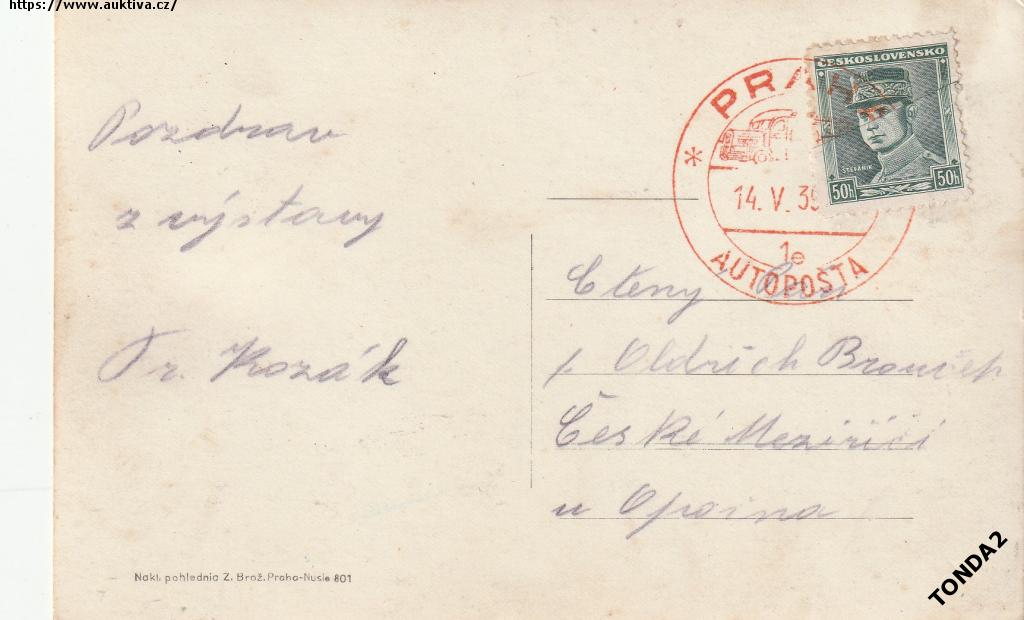 https://www.auktiva.cz/
ČESKOSLOVENSKO
ŠTEFÁNIK
50h 50h
PRAHA
14. V. 39
1e
* AUTOPOŠTA
Pozdrav
z výstavy
Fr. Kozák
Ctěný Pan
p. Oldřich
České Meziříčí
u Opočna
Nakl. pohlednic Z. Brož. Praha-Nusle 801
TONDA2